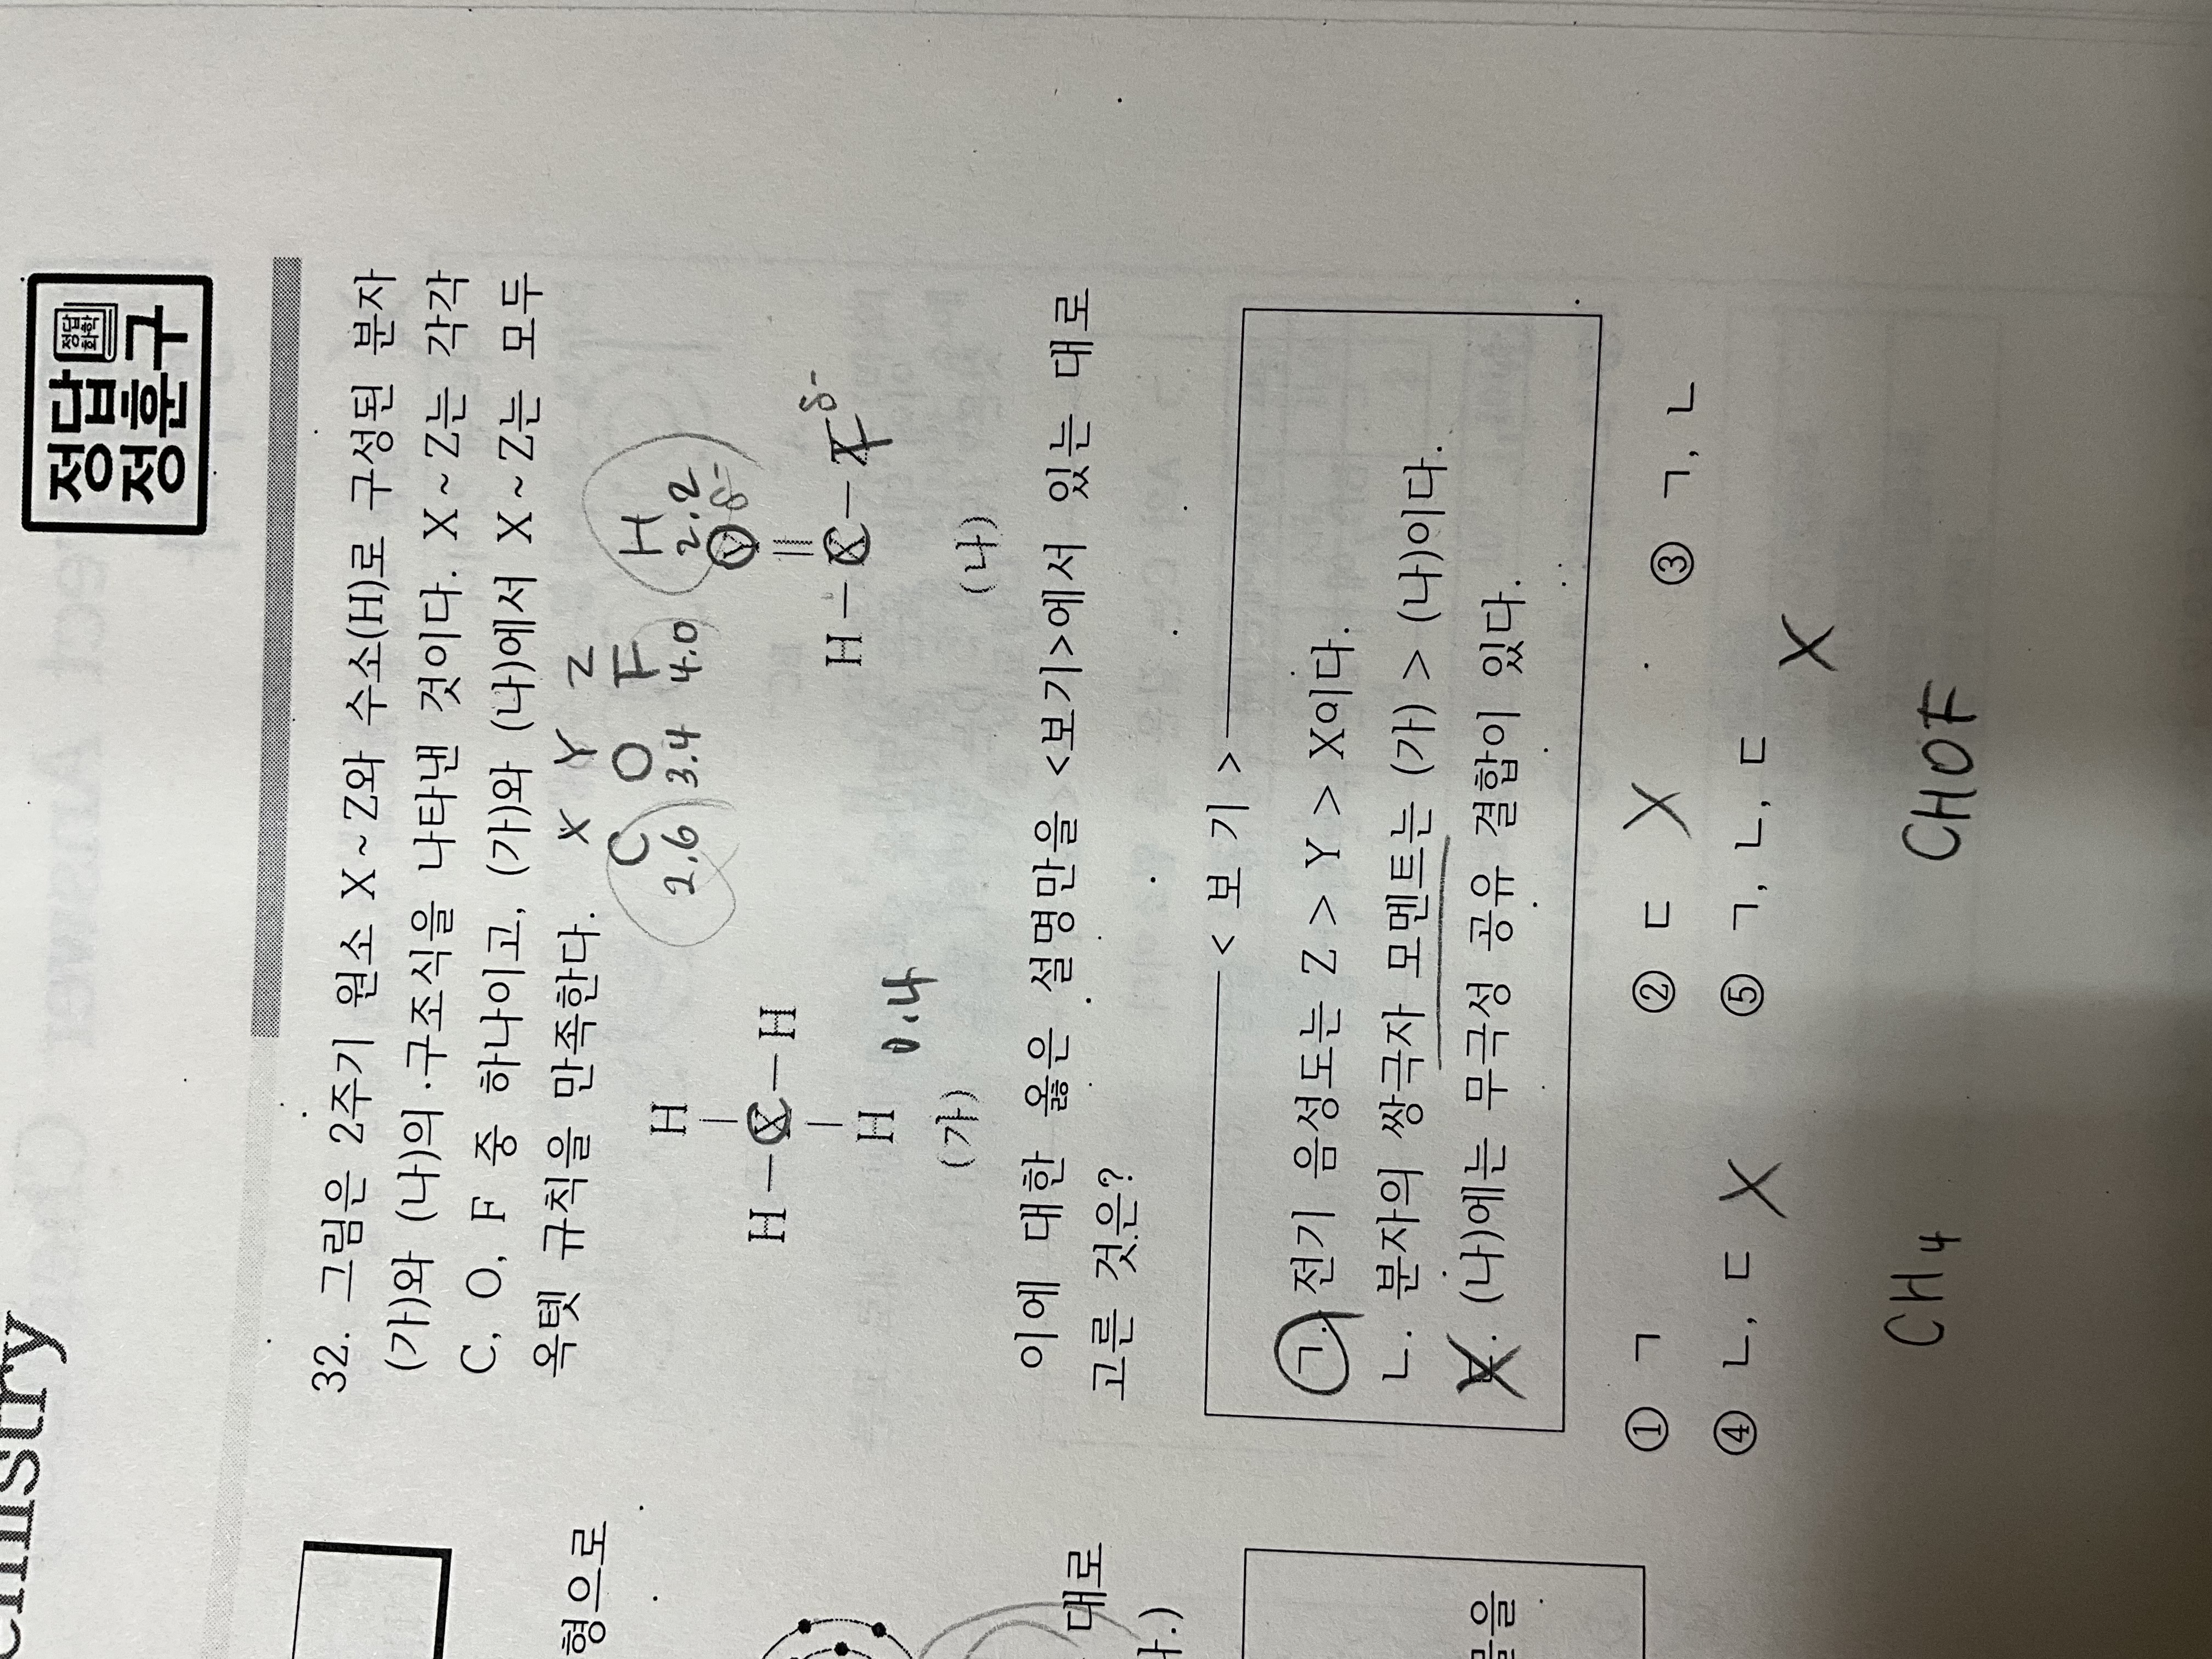 정답
정답
화학
정훈구
32. 그림은 2주기 원소 X~Z와 수소(H)로 구성된 분자
(가)와 (나)의 구조식을 나타낸 것이다. X~Z는 각각
C, O, F 중 하나이고, (가)와 (나)에서 X~Z는 모두
옥텟 규칙을 만족한다.
X Y Z
C O F H
2.6 3.4 4.0 2.2
H
H-X-H
H
0.4
(가)
Y δ-
H-X-F δ-
(나)
이에 대한 옳은 설명만을 <보기>에서 있는 대로
고른 것은?
<보 기>
ㄱ. 전기 음성도는 Z > Y > X이다.
ㄴ. 분자의 쌍극자 모멘트는 (가) > (나)이다.
ㄷ. (나)에는 무극성 공유 결합이 있다.
① ㄱ ② ㄷ X ③ ㄱ, ㄴ
④ ㄴ, ㄷ X ⑤ ㄱ, ㄴ, ㄷ X
CH4 CHOF
형으로
대로